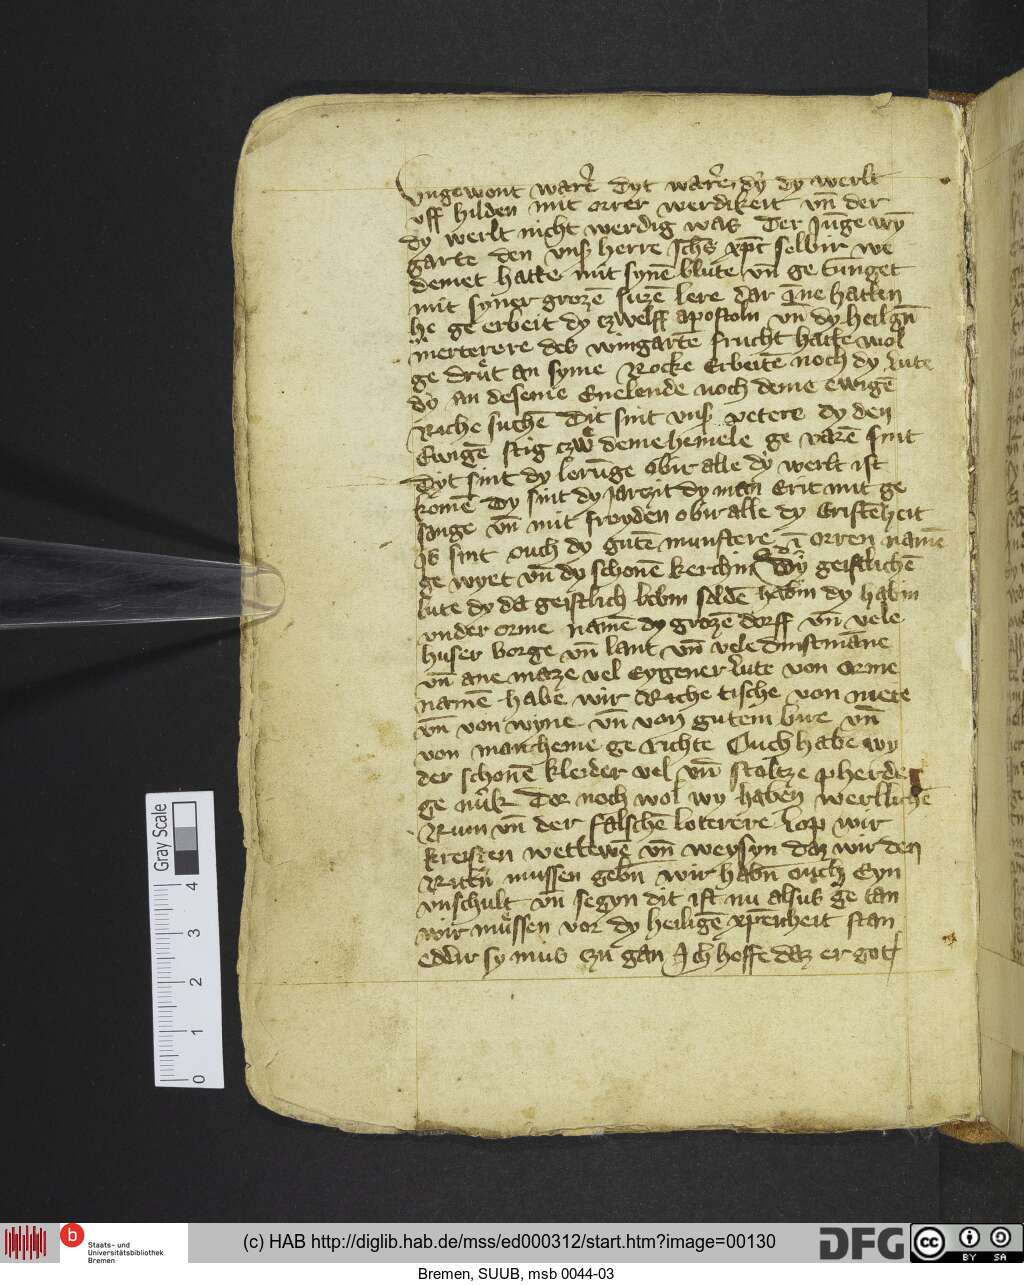 vngewont warē dyt warē dy dy werlt
vff hilden mit orrer werdikeit vn̄ der
dy werlt nicht werdig was Der Jūge wȳ
garte den vnß herre ihs xp̄c selbir we
demet hatte mit synē blute vn̄ ge tunget
mit syner grozē suzē lere dar Inne hatten
he ge erbeit dy czwelff apostoln vn̄ dy heilgn̄
merterere des wingartē frucht hatte wol
ge drut an syme Rocke Erbeitē noch dy lute
dy an deseme Enelende noch deme ewigē
Riche suchē Dit sint vnß vetere dy den
Ewigē stig czw deme hemele ge varē sint
Dyt sint dy lerūge obir alle dy werlt ist
komē Dy sint dy Jarczit dy man Erit mit ge
sange vn̄ mit froyden obir alle dy Cristēheit
Is sint ouch dy gutē munstere ī orren namē
ge wyet vn̄ dy schonē kerchin Dy geistlichē
lute dy da geistlich lebin soldē habin dy habin
vnder orme namē dy grozē dorff vn̄ vele
huser borge vn̄ lant vn̄ vele dinstmāne
vn̄ ane maze vel Eygener lute von orme
namē habe wir Riche tische von mete
vn̄ von wyne vn̄ von gutem bire vn̄
von mancheme ge richte Ouch habe wy
der schonē kleider vel vn̄ stoltze pherde
ge nuk Dor noch wol wy haben werltlichē
Rum vn̄ der falschē loterere lop wir
kreisten wettewē vn̄ weysyn daz wir den
Rittn̄ mussen gebn̄ wir habn̄ ouch Eyn
vnschult vn̄ segyn dit ist nu alsus ge tan
wir mussen vor dy heiligē xp̄enheit stan
eddir sy mus czu gan Ich hoffe daz er got
Gray Scale
4
3
2
1
0
b
Staats- und
Universitätsbibliothek
Bremen
(c) HAB http://diglib.hab.de/mss/ed000312/start.htm?image=00130
DFG
cc
BY SA
Bremen, SUUB, msb 0044-03